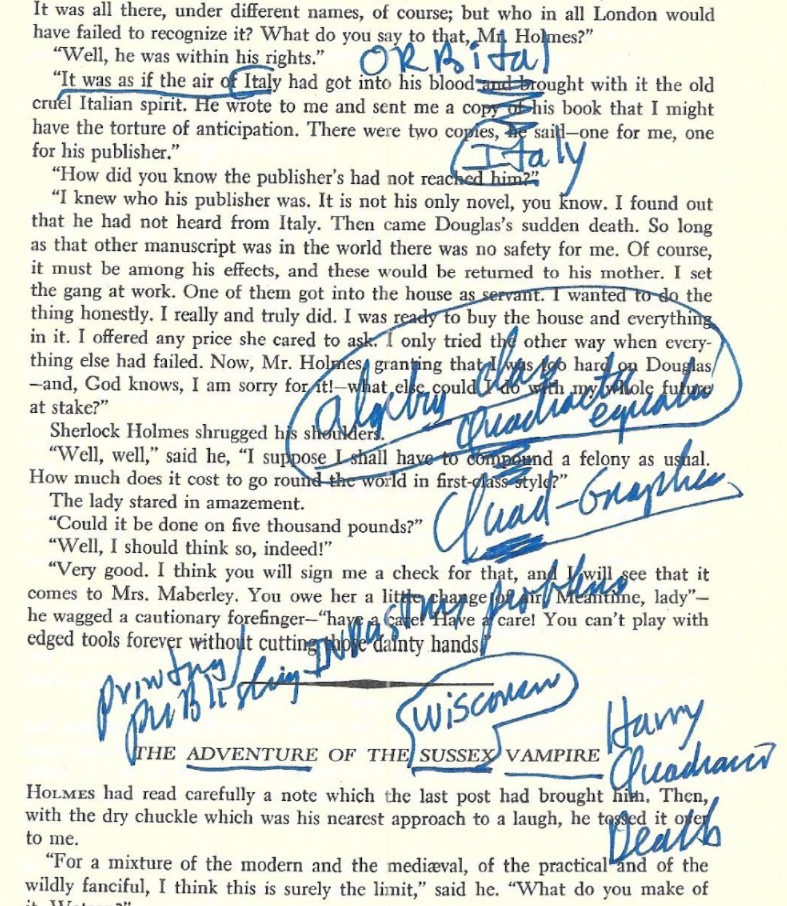 It was all there, under different names, of course; but who in all London would
have failed to recognize it? What do you say to that, Mr. Holmes?"
"Well, he was within his rights."
ORBital
"It was as if the air of Italy had got into his blood and brought with it the old
cruel Italian spirit. He wrote to me and sent me a copy of his book that I might
have the torture of anticipation. There were two copies, he said—one for me, one
for his publisher."
Italy
"How did you know the publisher's had not reached him?"
"I knew who his publisher was. It is not his only novel, you know. I found out
that he had not heard from Italy. Then came Douglas's sudden death. So long
as that other manuscript was in the world there was no safety for me. Of course,
it must be among his effects, and these would be returned to his mother. I set
the gang at work. One of them got into the house as servant. I wanted to do the
thing honestly. I really and truly did. I was ready to buy the house and everything
in it. I offered any price she cared to ask. I only tried the other way when every-
thing else had failed. Now, Mr. Holmes, granting that I was too hard on Douglas
—and, God knows, I am sorry for it!—what else could I do with my whole future
at stake?"
algebra class
Quadratic
Sherlock Holmes shrugged his shoulders.
"Well, well," said he, "I suppose I shall have to compound a felony as usual.
How much does it cost to go round the world in first-class style?"
Quad-Graphics
The lady stared in amazement.
"Could it be done on five thousand pounds?"
"Well, I should think so, indeed!"
"Very good. I think you will sign me a check for that, and I will see that it
comes to Mrs. Maberley. You owe her a little change of air. Meantime, lady"—
he wagged a cautionary forefinger—"have a care! Have a care! You can't play with
edged tools forever without cutting those dainty hands!"
printing/
puBlishing INDustry problems
Wisconsin
THE ADVENTURE OF THE SUSSEX VAMPIRE
Harry
Quadracci
Death
HOLMES had read carefully a note which the last post had brought him. Then,
with the dry chuckle which was his nearest approach to a laugh, he tossed it over
to me.
"For a mixture of the modern and the mediæval, of the practical and of the
wildly fanciful, I think this is surely the limit," said he. "What do you make of